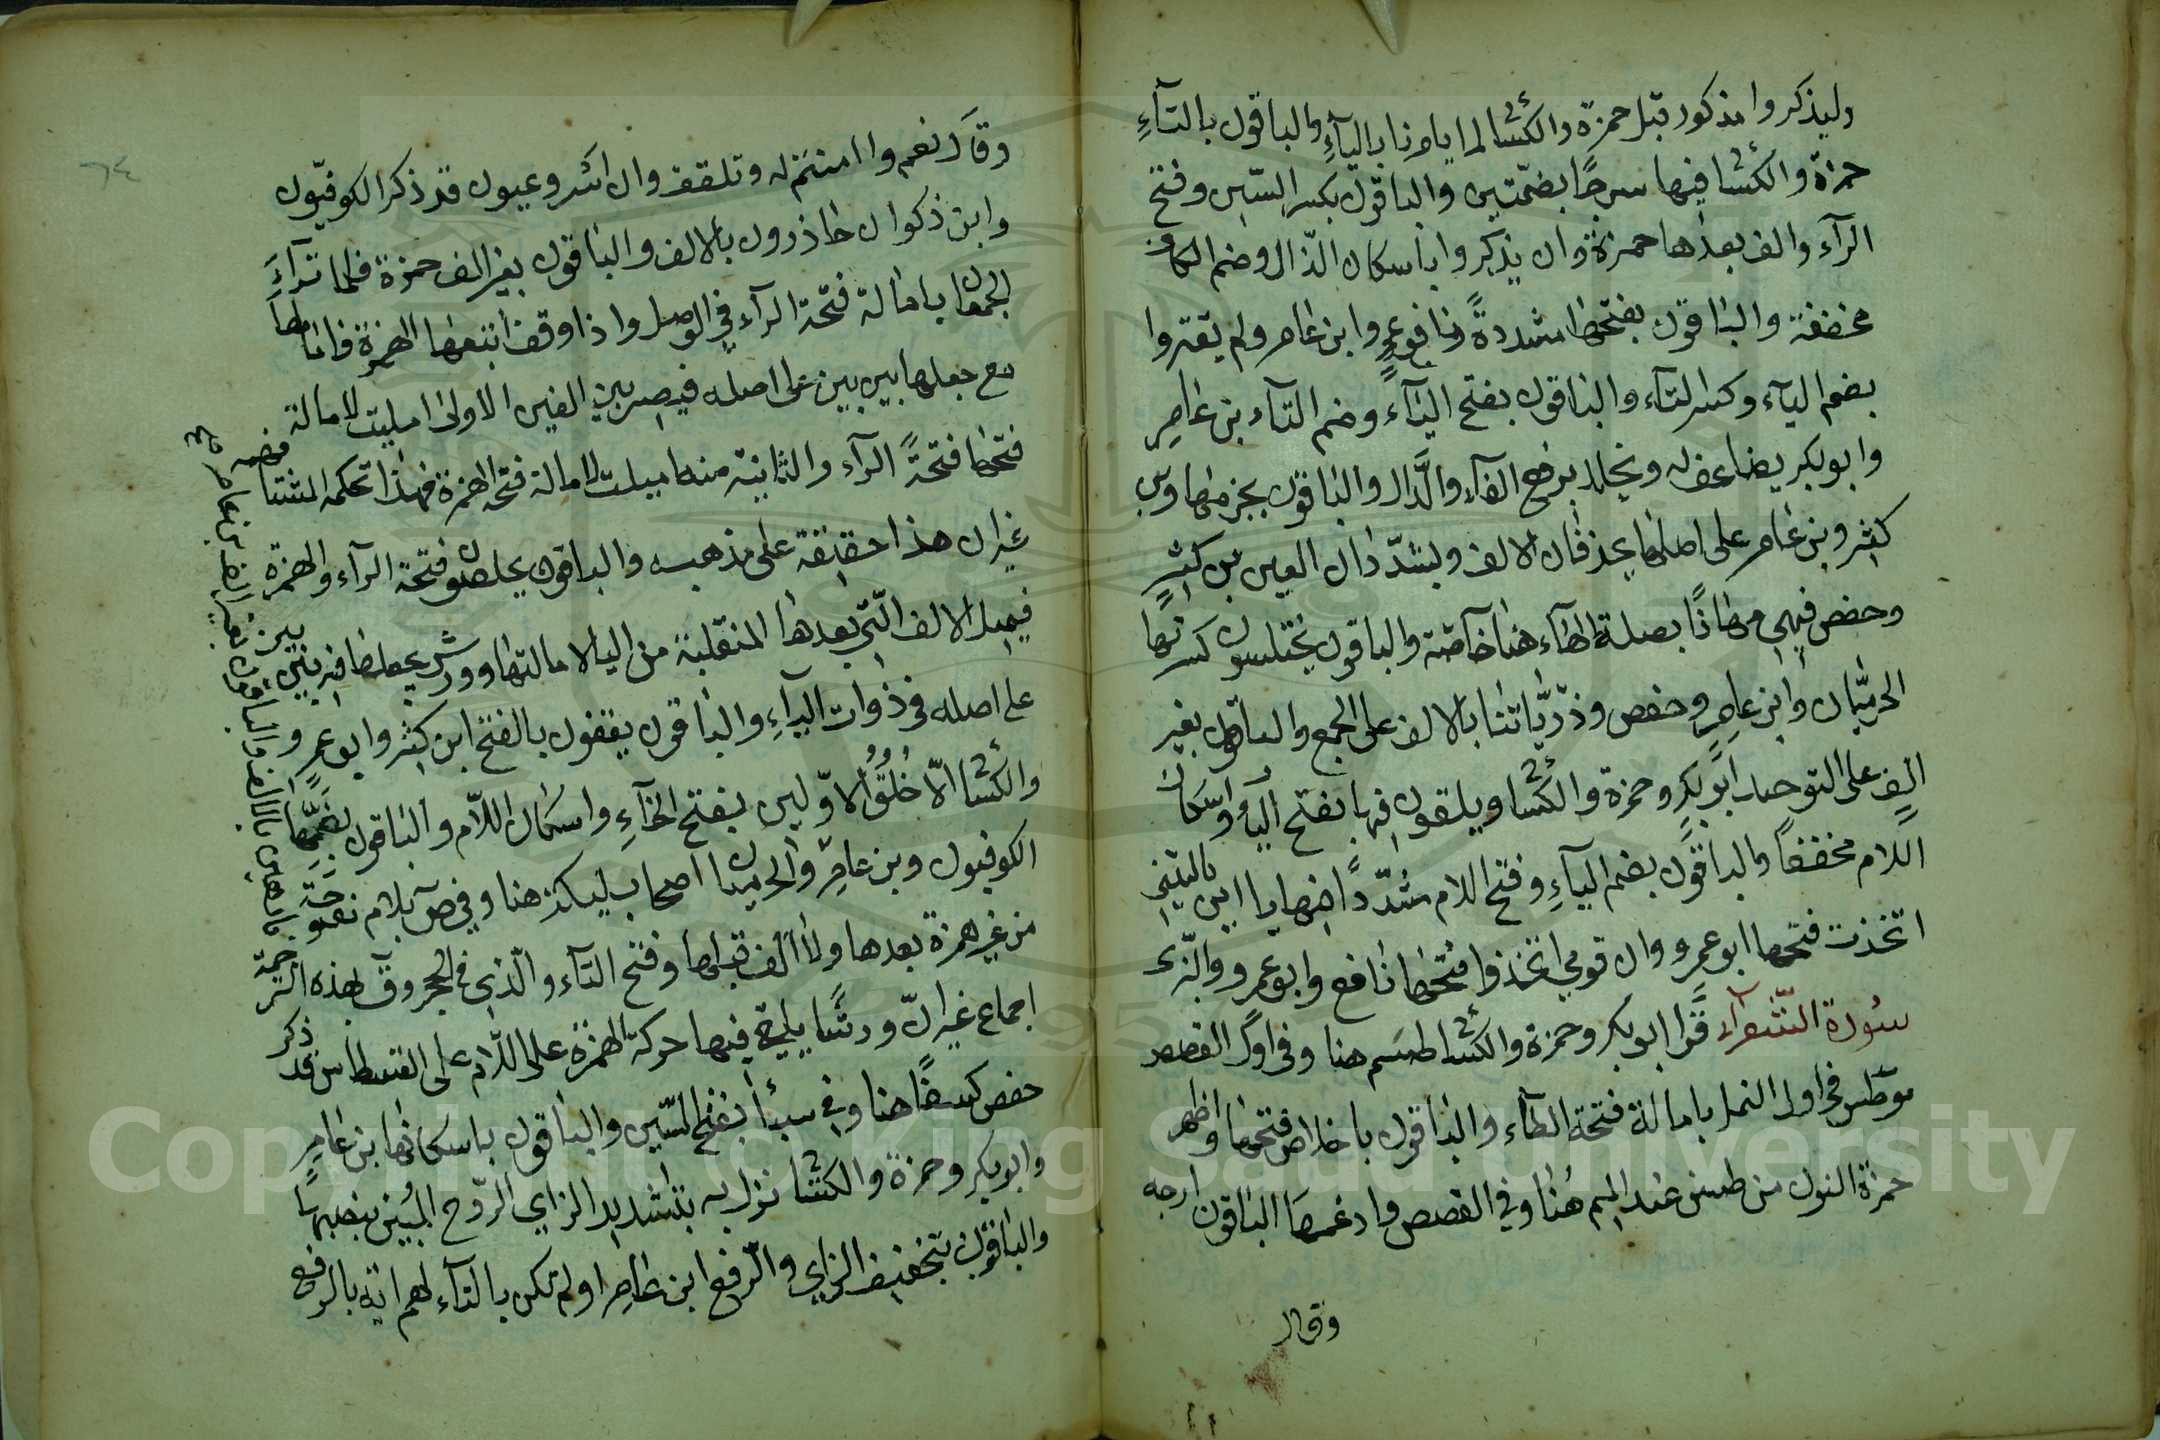 وليذكروا مذكور قبل حمزة والكسائ لما يامرنا بالياء والباقون بالتآء
حمزة والكسائ فيها سرجا بضمتين والباقون بكسر السّين وفتح
الرآء والف بعدها حمزة وان يذكروا باسكان الذّال وضم الكاف
مخففة والباقون بفتحها مشددة نافع وابن عامر ولم يقتروا
بضم اليآء وكسر التآء والباقون بفتح اليآء وضم التآء بن عامر
وابو بكر يضاعف له ويخلد برفع الفآء والدّال والباقون بجزمها وبن
كثير وبن عامر على اصلهما يحذفان الالف ويشدّدان العين بن كثير
وحفص فيهى مهانا بصلة الهآء هنا خاصّة والباقون يختلسون كسرتها
الحرميّان وابن عامر وحفص وذرّيّاتنا بالالف على الجمع والباقون بغير
الف على التوحيد ابو بكر وحمزة والكسائ ويلقون فيها بفتح اليآء واسكان
اللام مخففا والباقون بضم اليآء وفتح اللام مشدّدا فيها ياا اين ياليتني
اتخذت فتحها ابو عمرو وان قومي اتخذوا فتحها نافع وابو عمرو والبزى
سورة الشعرآء قرا ابو بكر وحمزة والكسائ طسم هنا وفي اول القصص
وطس في اول النمل بامالة فتحة الطآء والباقون باخلاص فتحها واظهر
حمزة النون من طسن عند الميم هنا وفي القصص وادغمها الباقون ارجه
وقال
٦٤
وقال نعم واامنتم له وتلقف وان اسر وعيون قد ذكر الكوفيّون
وابن ذكوان حاذرون بالالف والباقون بغير الف حمزة فلما تراء
الجمعان بامالة فتحة الرآء في الوصل واذا وقف اتبعها الهمزة فامالها
مع جعلها بين بين على اصله فيصير بين الفين الاولى اميلت لامالة
فتحها فتحة الرآء والثانية منه اميلت لامالة فتحه الهمزة فهذا تحكمه المشتا
غير ان هذا حقيقة على مذهبه والباقون يخلصون فتحة الرآء والهمزة
فيميل الالف التي بعدها المنقلبة من اليا لامالتها وورش يجعلها فيه بين بين
على اصله في ذوات اليآء والباقون يقفون بالفتح ابن كثير وابو عمرو
والكسائ الّا خلق الاوّلين بفتح الخآء واسكان اللّام والباقون بضمّهما
الكوفيون وبن عامر والحرميان اصحاب ليكة هنا وفي ص بلام مفتوحة
من غير همزة بعدها ولا الف قبلها وفتح التآء والّذي في الحجر وق بهذه الترجمة
اجماع غير انّ ورشا يلقي فيها حركة الهمزة على اللّام على القسطاس قد ذكر
حفص كسفا هنا وفي سبأ بفتح السّين والباقون باسكانها بن عامر
وابو بكر وحمزة والكسائ نزل به بتشديد الزاي الرّوح الامين بنصبهما
والباقون بتخفيف الزاي والرفع ابن عامر اولم تكن بالتآء لهم اية بالرفع